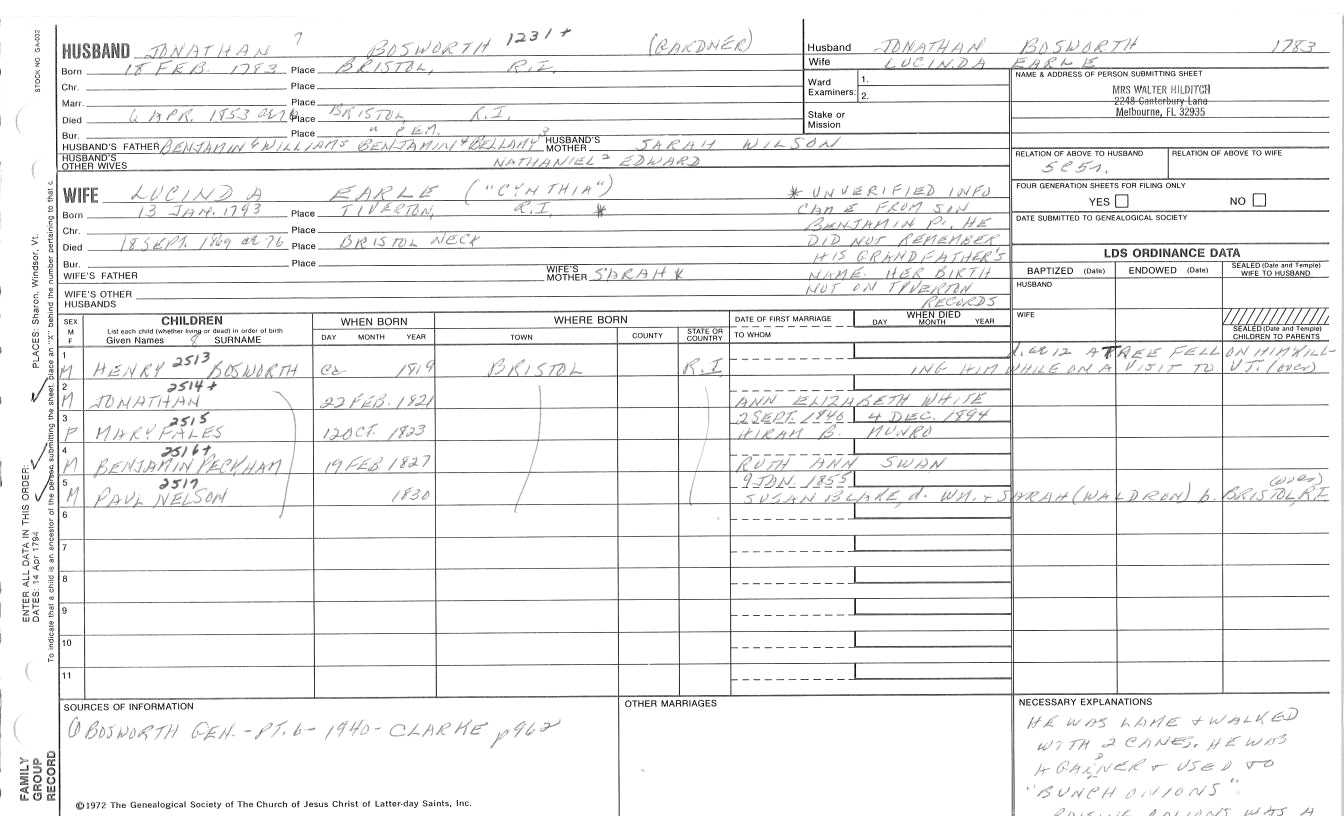 STOCK NO GA-002
HUSBAND JONATHAN 7 BOSWORTH 1231+ (GARDNER)
Born 18 FEB. 1783 Place BRISTOL, R.I.
Chr. Place
Marr. Place
Died 6 APR. 1853 Place BRISTOL, R.I.
Bur. Place " CEM.
HUSBAND'S FATHER BENJAMIN 6 WILLIAM 5 BENJAMIN 4 BELLAMY 3 HUSBAND'S MOTHER SARAH WILSON
HUSBAND'S OTHER WIVES NATHANIEL 2 EDWARD
Husband JONATHAN BOSWORTH 1783
Wife LUCINDA EARLE
Ward Examiners: 1.
2.
Stake or Mission
NAME & ADDRESS OF PERSON SUBMITTING SHEET
MRS WALTER HILDITCH
2248 Canterbury Lane
Melbourne, FL 32935
RELATION OF ABOVE TO HUSBAND RELATION OF ABOVE TO WIFE
FOUR GENERATION SHEETS FOR FILING ONLY
YES NO
DATE SUBMITTED TO GENEALOGICAL SOCIETY
WIFE LUCINDA EARLE ("CYNTHIA")
Born 13 JAN. 1793 Place TIVERTON, R.I. *
Chr. Place
Died 18 SEPT. 1869 at 76 Place BRISTOL NECK
Bur. Place
WIFE'S FATHER WIFE'S MOTHER SARAH *
WIFE'S OTHER HUSBANDS
* UNVERIFIED INFO
CAME FROM SON
BENJAMIN P. HE
DID NOT REMEMBER
HIS GRANDFATHER'S
NAME. HER BIRTH
NOT ON TIVERTON
RECORDS
LDS ORDINANCE DATA
BAPTIZED (Date) ENDOWED (Date) SEALED (Date and Temple) WIFE TO HUSBAND
HUSBAND
WIFE
SEALED (Date and Temple) CHILDREN TO PARENTS
SEX M F
CHILDREN
List each child (whether living or dead) in order of birth
Given Names 8 SURNAME
WHEN BORN
DAY MONTH YEAR
WHERE BORN
TOWN COUNTY STATE OR COUNTRY
DATE OF FIRST MARRIAGE
TO WHOM
WHEN DIED
DAY MONTH YEAR
1 M 2513 HENRY BOSWORTH ca 1819 BRISTOL R.I. at 12 A TREE FELL ON HIM KILL-
ING HIM WHILE ON A VISIT TO VT. (over)
2 M 2514+ JONATHAN 22 FEB. 1821 ANN ELIZABETH WHITE
3 F 2515 MARY FALES 12 OCT. 1823 2 SEPT. 1846 4 DEC. 1894
HIRAM B. MUNRO
4 M 2516+ BENJAMIN PECKHAM 19 FEB 1827 RUTH ANN SWAN
5 M 2517 PAUL NELSON 1830 9 JAN. 1855 (over)
SUSAN BLAKE, d. WM. + SARAH (WALDRON) b. BRISTOL, RI
6
7
8
9
10
11
PLACES: Sharon, Windsor, Vt.
ENTER ALL DATA IN THIS ORDER:
DATES: 14 Apr 1794
To indicate that a child is an ancestor of the person submitting the sheet, place an "X" behind the number pertaining to that c
SOURCES OF INFORMATION
① BOSWORTH GEN. - PT. 6 - 1940 - CLARKE p962
OTHER MARRIAGES
NECESSARY EXPLANATIONS
HE WAS LAME + WALKED
WITH 2 CANES. HE WAS
A GARDNER + USED TO
"BUNCH ONIONS".
FAMILY GROUP RECORD
©1972 The Genealogical Society of The Church of Jesus Christ of Latter-day Saints, Inc.